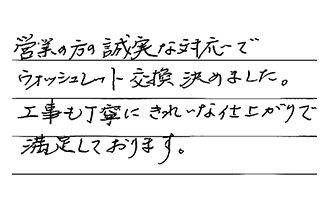 営業の方の誠実な対応で
ウォッシュレット交換決めました。
工事も丁寧にきれいな仕上がりで
満足しております。